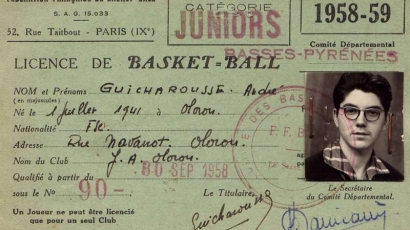 S.A.G. 15.033
52, Rue Taitbout - PARIS (IXe)
CATÉGORIE
JUNIORS
1958-59
Comité Départemental
BASSES-PYRÉNÉES
LICENCE DE BASKET-BALL
NOM et Prénoms GUICHAROUSSE André
(en majuscules)
Né le 1 juillet 1941 à Oloron
Nationalité Fse
Adresse Rue Navarrot Oloron
Nom du Club J.A. Oloron
Qualifié à partir du 30 SEP 1958
sous le No 90-
Un Joueur ne peut être licencié
que pour un seul Club
Le Titulaire,
Guicharousse
Le Secrétaire
du Comité Départemental.